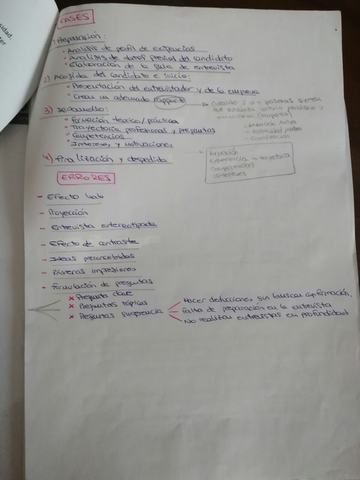 FASES
1) Preparación:
· Análisis de perfil de exigencias
· Análisis de datos previos del candidato
· Elaboración de la guía de entrevista
2) Acogida del candidato e inicio:
· Presentación del entrevistador y de la empresa
· Crear un adecuado rapport
3) Desarrollo:
· Formación teórica/práctica
· Trayectoria profesional y
· Competencias
· Intereses y motivaciones
4) Finalización y despedida
Cuando 2 o + personas sienten
Formación
competencias
intereses
ERRORES
- Efecto halo
- Proyección
- Entrevista estereotipada
- Efecto de contraste
- Ideas preconcebidas
- Primeras impresiones
- Formulación de preguntas
x Pregunta clave
x Preguntas tópicas
x Preguntas sugerencia
- Hacer deducciones sin buscar confirmación
- Falta de preparación en la entrevista
- No realizar entrevistas en profundidad